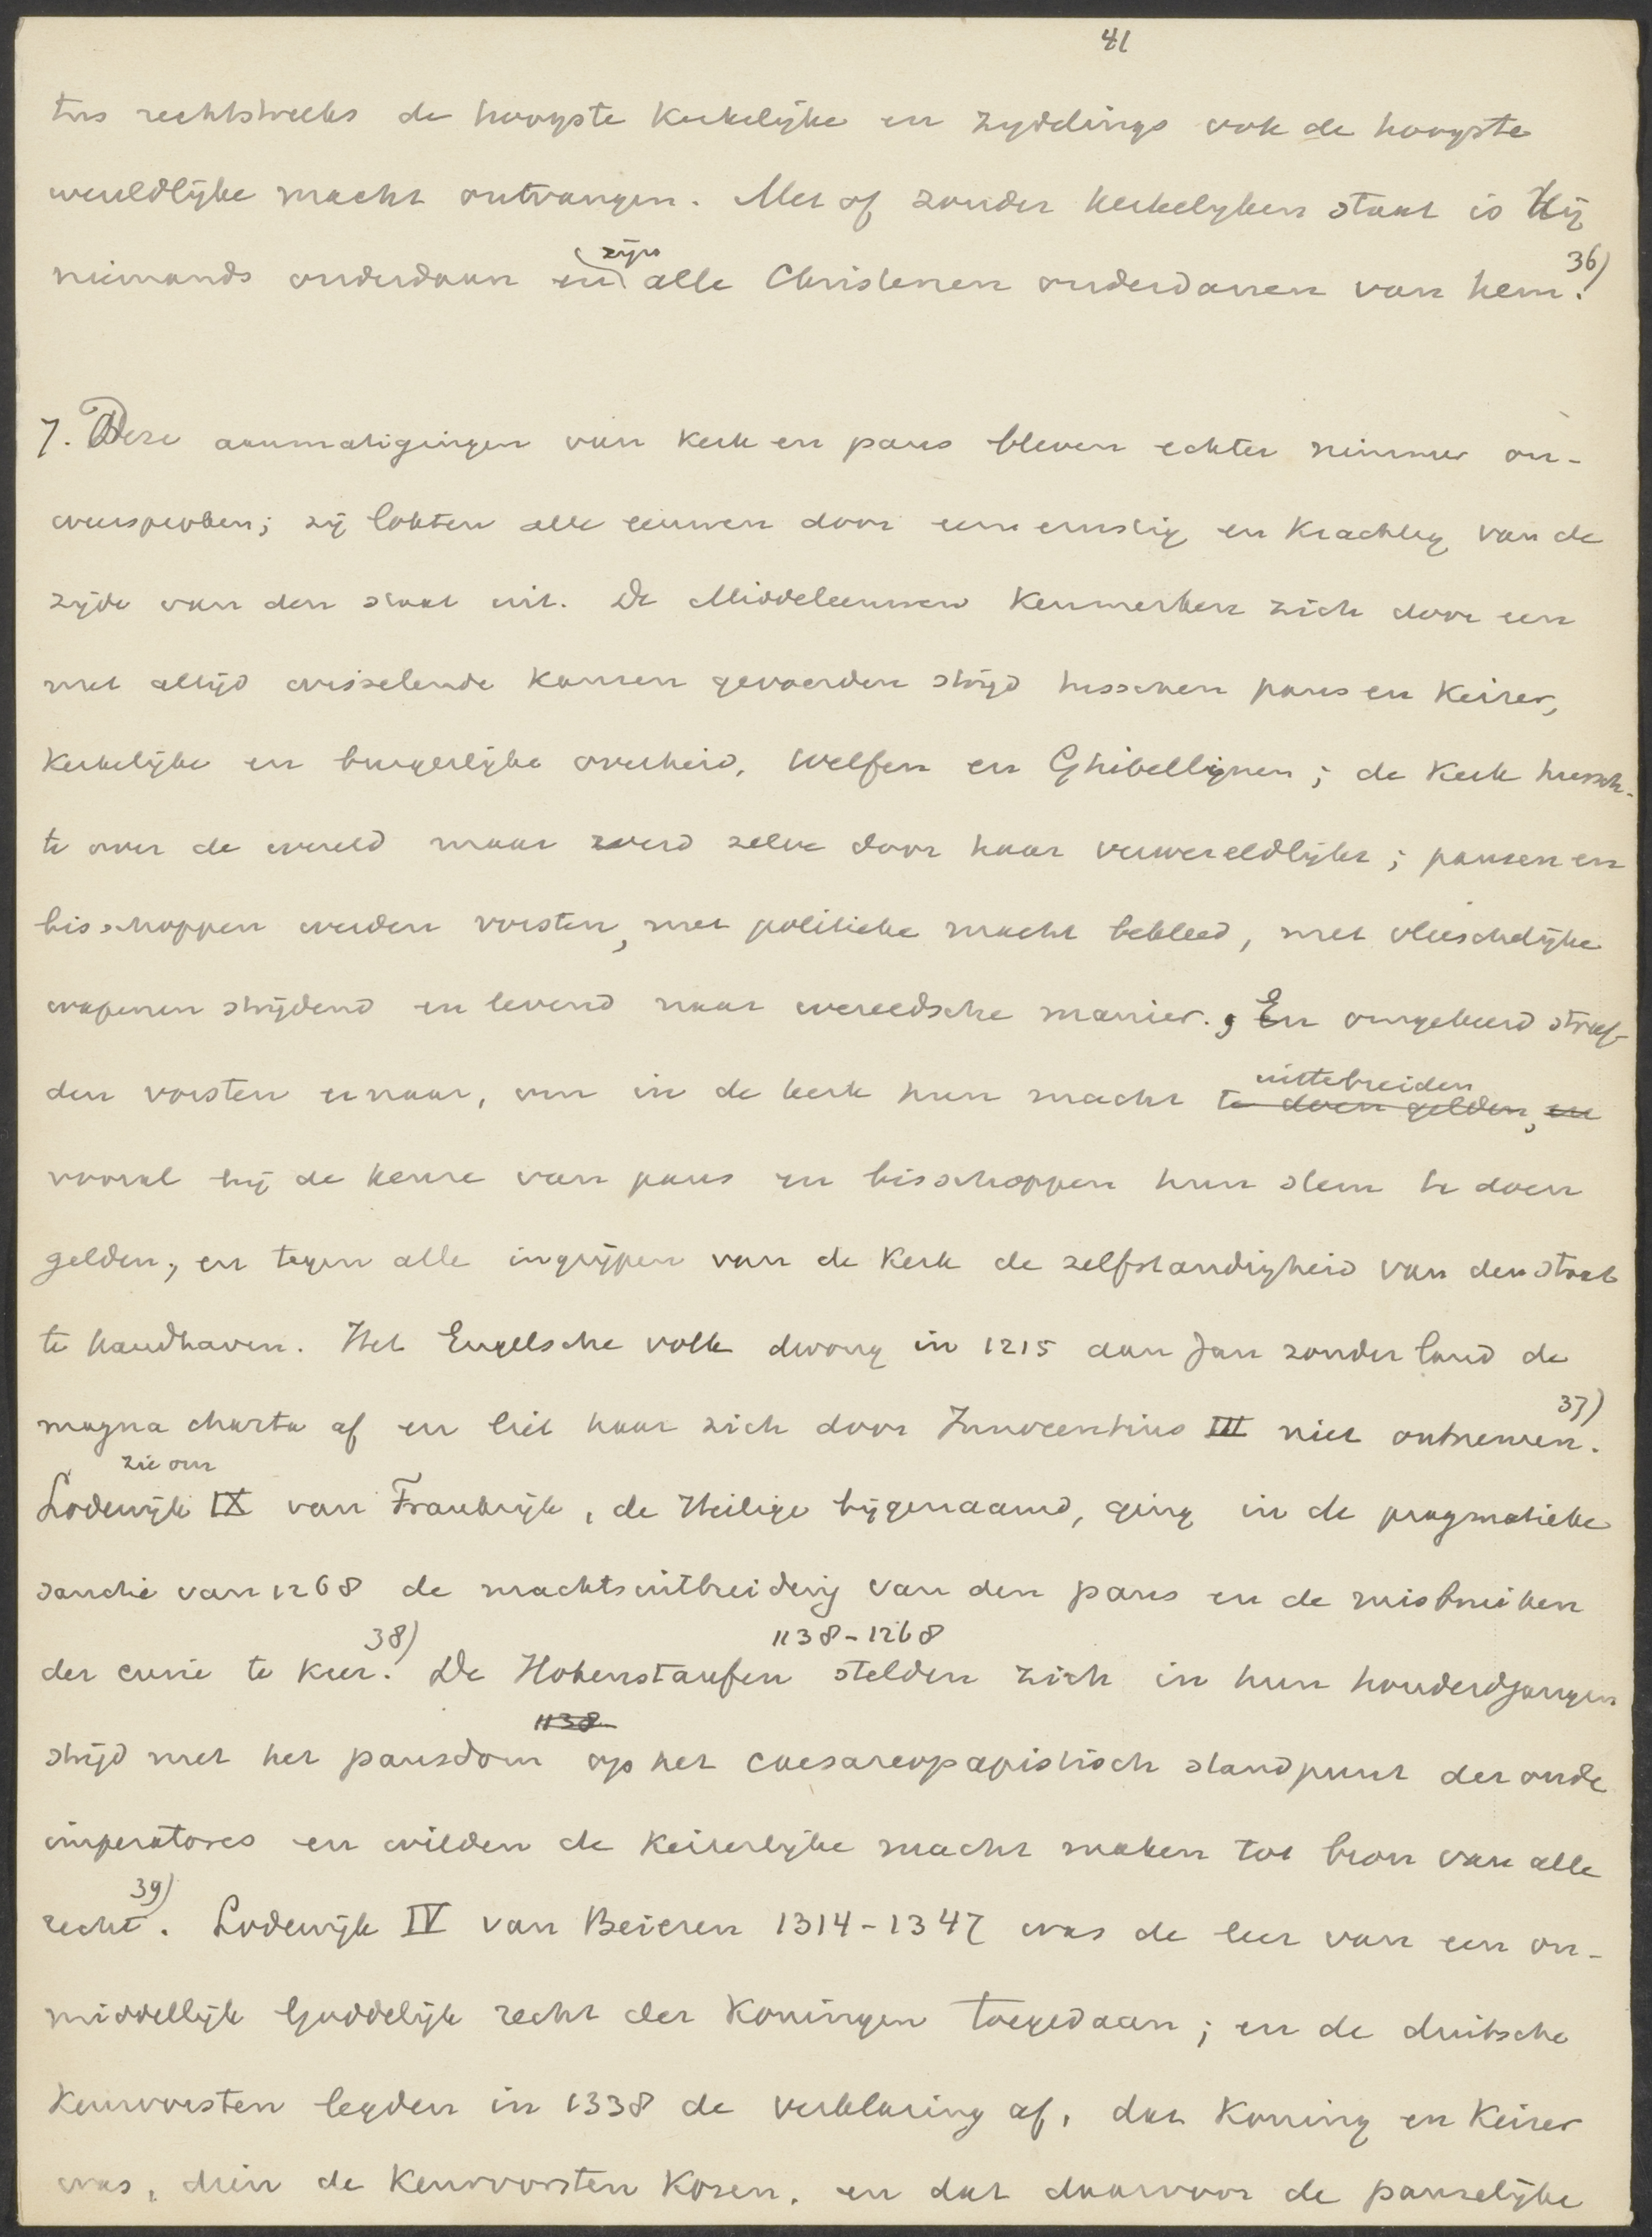 41
tus rechtstreeks de hoogste kerkelijke en zijdelings ook de hoogste
wereldlijke macht ontvangen. Met of zonder kerkelijken staat is Hij
niemands onderdaan en zijn alle Christenen onderdanen van hem. 36)
7. Deze aanmatigingen van kerk en paus bleven echter nimmer on-
weersproken; zij lokten alle eeuwen door een ernstig en krachtig van de
zijde van den staat uit. De Middeleeuwen kenmerken zich door een
met altijd wisselende kansen gevoerden strijd tusschen paus en keizer,
kerkelijke en burgerlijke overheid, Welfen en Ghibellijnen; de kerk heersch-
te over de wereld maar werd zelve door haar verwereldlijkt; pausen en
bisschoppen werden vorsten, met politieke macht bekleed, met vleeschelijke
wapenen strijdend en levend naar wereldsche manier. En omgekeerd streef-
den vorsten ernaar, om in de kerk hun macht uittebreiden te doen gelden, en
vooral bij de keuze van paus en bisschoppen hun stem te doen
gelden, en tegen alle ingrijpen van de kerk de zelfstandigheid van den staat
te handhaven. Het Engelsche volk dwong in 1215 aan Jan zonder land de
magna charta af en liet haar zich door Innocentius III niet ontnemen. 37)
zie om
Lodewijk IX van Frankrijk, de Heilige bijgenaamd, ging in de pragmatieke
sanctie van 1268 de machtsuitbreiding van den paus en de misbruiken
der curie te keer. 38) De Hohenstaufen 1138-1268 stelden zich in hun honderdjarigen
strijd met het pausdom 1138 op het caesareopapistisch standpunt der oude
imperatores en wilden de keizerlijke macht maken tot bron van alle
recht. 39) Lodewijk IV van Beieren 1314-1347 was de leer van een on-
middellijk Goddelijk recht der koningen toegedaan; en de duitsche
keurvorsten legden in 1338 de verklaring af, dat koning en keizer
was, dien de keurvorsten kozen, en dat daarvoor de pauselijke